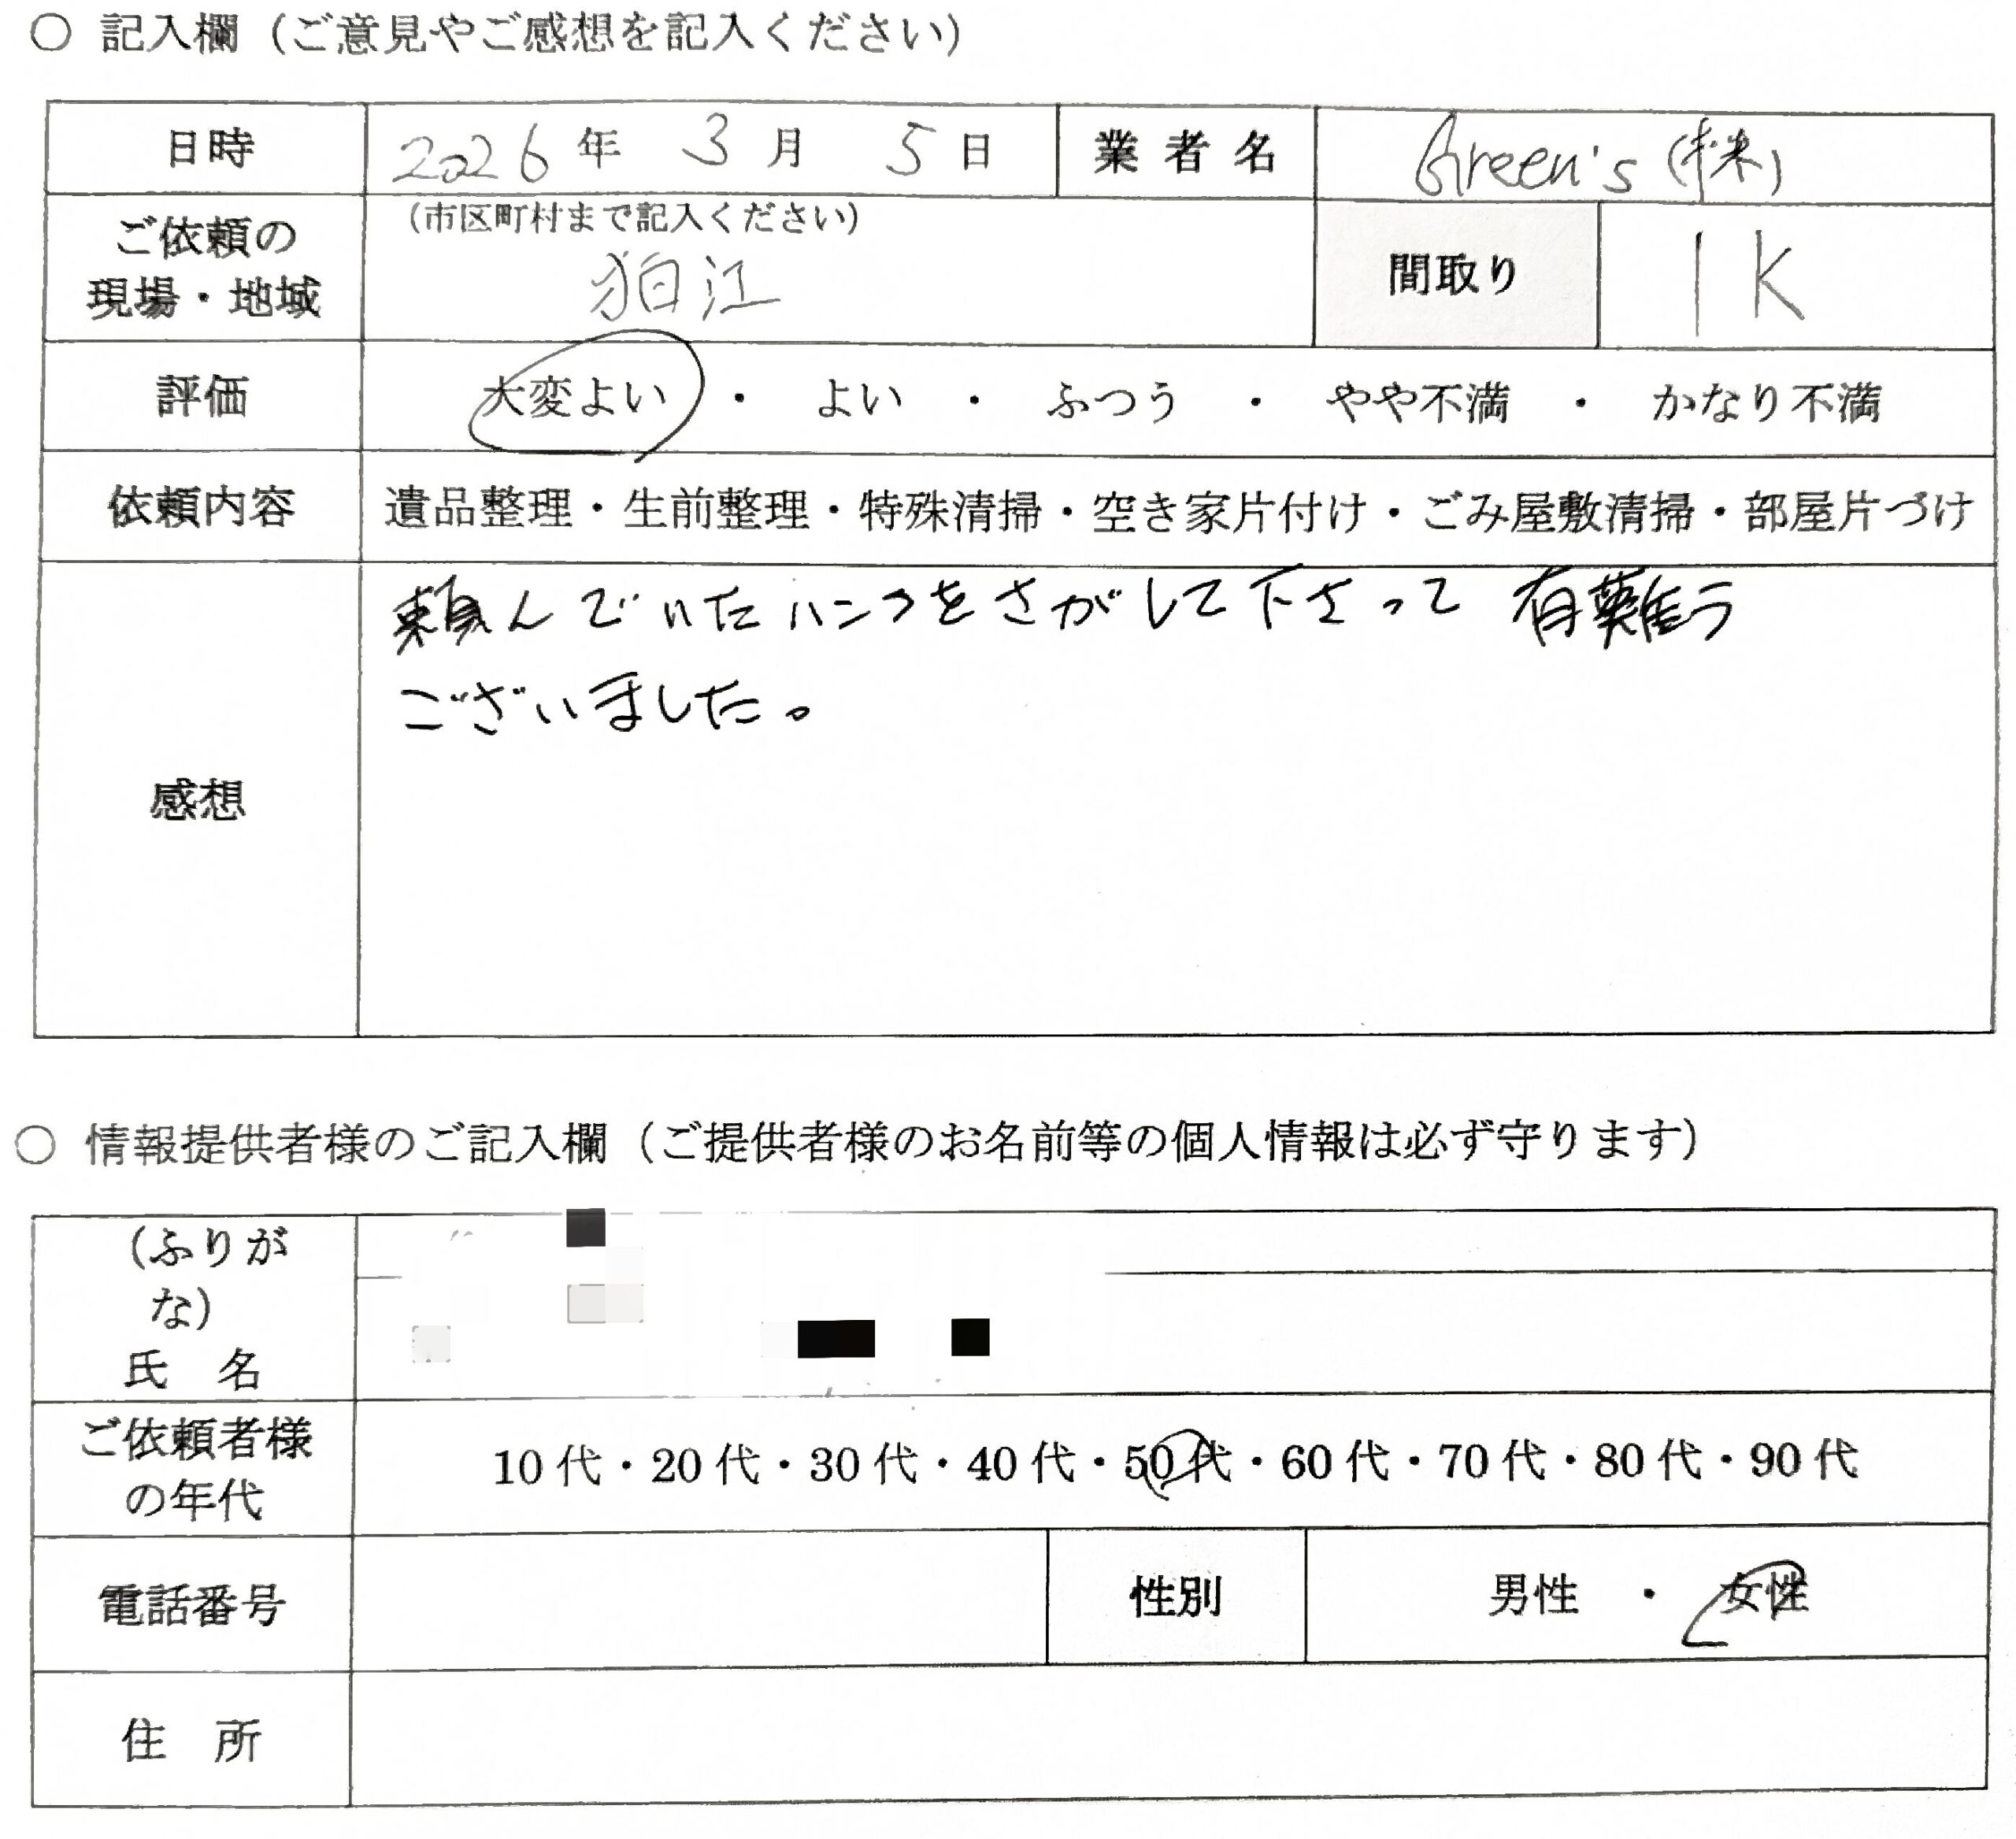 ○ 記入欄（ご意見やご感想を記入ください）
日時 2026年 3月 5日 業者名 Green's (株)
ご依頼の現場・地域 （市区町村まで記入ください） 狛江 間取り 1K
評価 大変よい ・ よい ・ ふつう ・ やや不満 ・ かなり不満
依頼内容 遺品整理・生前整理・特殊清掃・空き家片付け・ごみ屋敷清掃・部屋片づけ
感想 頼んでいたハンコをさがして下さって 有難う
ございました。
○ 情報提供者様のご記入欄（ご提供者様のお名前等の個人情報は必ず守ります）
（ふりがな）
氏 名
ご依頼者様の年代 10代・20代・30代・40代・50代・60代・70代・80代・90代
電話番号 性別 男性 ・ 女性
住 所